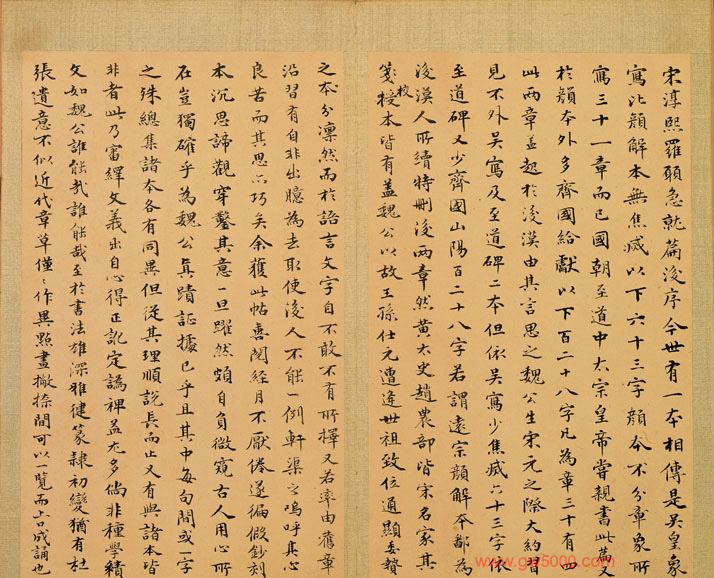 宋淳熙羅願急就篇後序今世有一本相傳是吳皇象
寫比顏解本無焦滅以下六十三字顏本不分章象所
寫三十一章而已國朝至道中太宗皇帝嘗親書此篇又
於顏本外多齊國給獻以下百二十八字凡為章三十有四
此兩章蓋起於後漢由其言思之魏公生宋元之際大約習
見不外吳寫及至道碑二本但依吳寫少焦滅六十三字依
至道碑又少齊國山陽百二十八字若謂遠宗顏解本鄙為
後漢人所續特刪後兩章然黃太史趙農部皆宋名家其
箋校授本皆有蓋魏公以故王孫仕元遭逢世祖致位通顯委贄
之本分凜然而於語言文字自不敢不有所擇又若率由舊章
沿習有自非出臆為去取使後人不能一例軒渠之嗚呼其心
良苦而其思亦巧矣余獲此帖喜閱經月不厭倦遂徧假鈔刻
本沉思諦觀穿鑿其意一旦躍然頗自負微窺古人用心所
在豈獨確乎為魏公真蹟証據已乎且其中每句間或一字
之殊總集諸本各有同異但從其理順說長而止又有與諸本皆
非者此乃審繹文義出自心得正訛定譌裨益尤多倘非種學績
文如魏公誰能哉誰能哉至於書法雄深雅健篆隸初變猶有杜
張遺意不似近代章草僅僅作異點畫撇捺間可以一覽而上口成誦也
www.gg5000.com